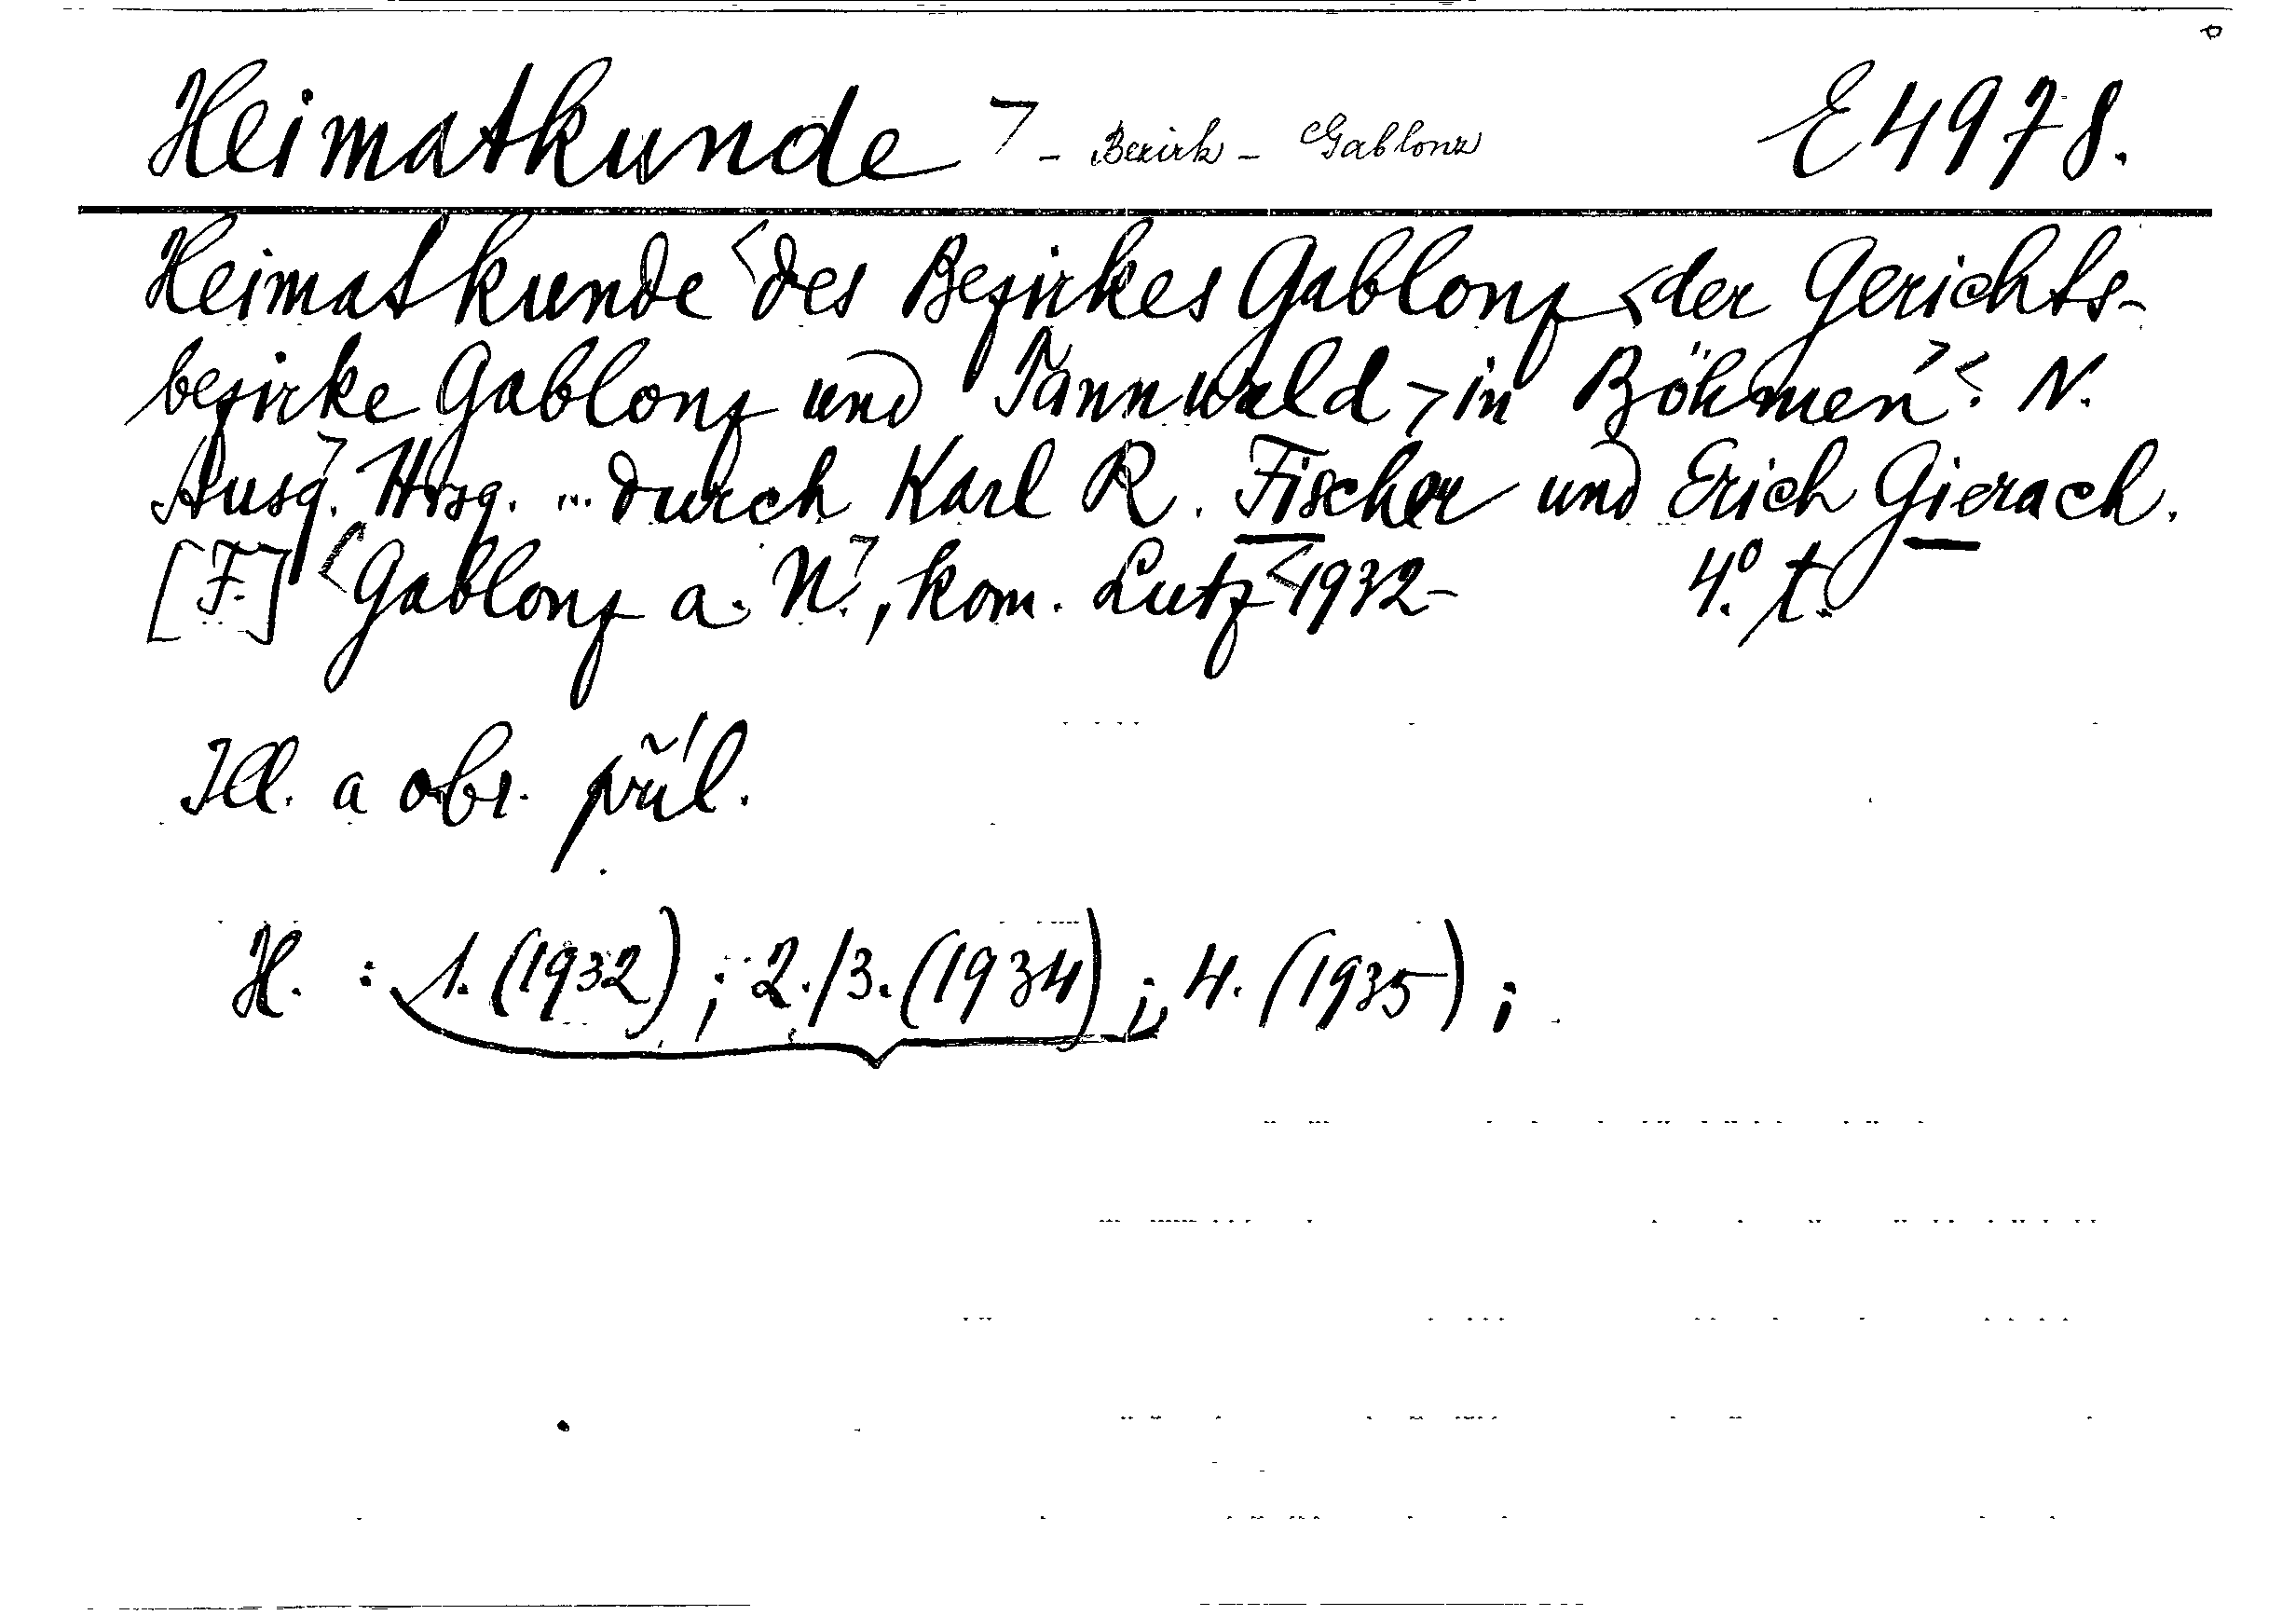 Heimatkunde > - Bezirk - Gablonz E 4978.
Heimatkunde <des Bezirkes Gablonz <der Gerichts-
bezirke Gablonz und Tannwald > in Böhmen>. < N.
Ausg.> Hrsg. ... durch Karl R. Fischer und Erich Gierach.
[F.] <Gablonz a. N.>, kom. Lutz <1932- 4°. t.
Ill. a obr. příl.
H. : 1. (1932) ; 2./3. (1934) ; 4. (1935) ;